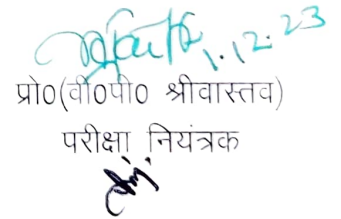 1.12.23
प्रो0(वी0पी0 श्रीवास्तव)
परीक्षा नियंत्रक